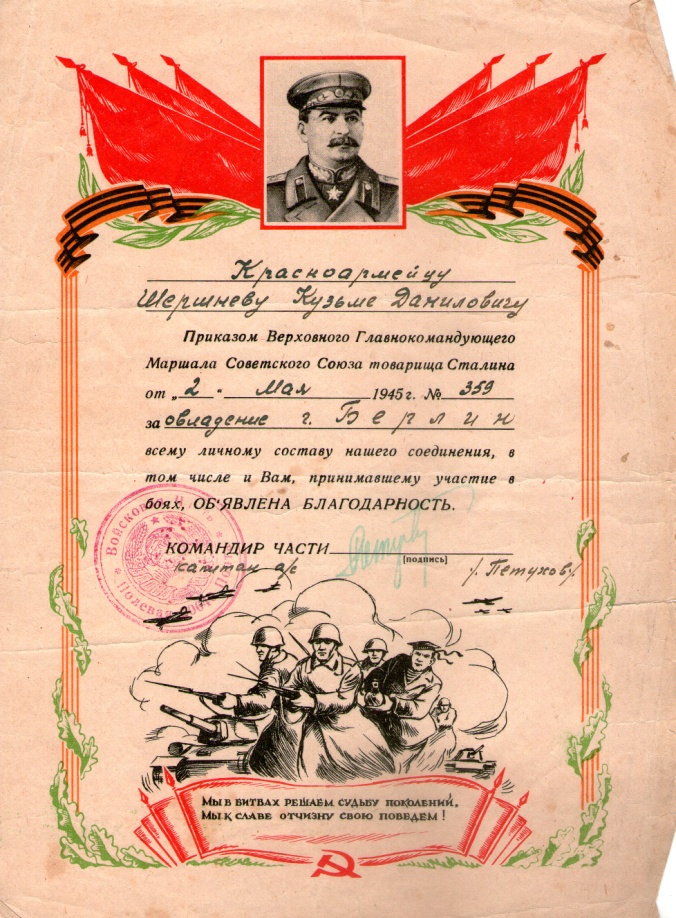 Красноармейцу
Шершневу Кузьме Даниловичу
Приказом Верховного Главнокомандующего
Маршала Советского Союза товарища Сталина
от „2“ Мая 1945 г. № 359
за овладение г. Берлин
всему личному составу нашего соединения, в
том числе и Вам, принимавшему участие в
боях, ОБ'ЯВЛЕНА БЛАГОДАРНОСТЬ.
Войсковая Часть
Полевая Почта
КОМАНДИР ЧАСТИ
[подпись]
капитан а/с /Петухов/
МЫ В БИТВАХ РЕШАЕМ СУДЬБУ ПОКОЛЕНИЙ,
МЫ К СЛАВЕ ОТЧИЗНУ СВОЮ ПОВЕДЕМ!